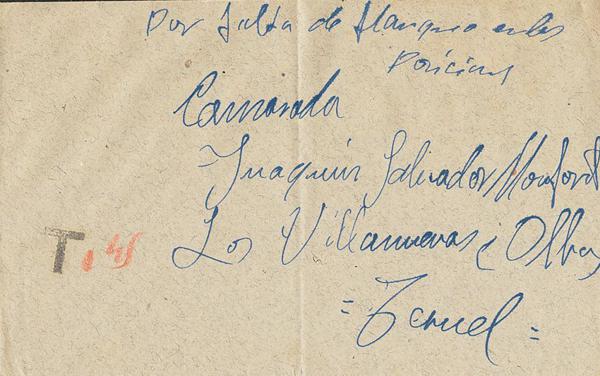 Por falta de franqueo en las
Camarada
=Juaquin Salvador Monfort
Los Villanuevas (Olba)
T. 45
=Teruel=